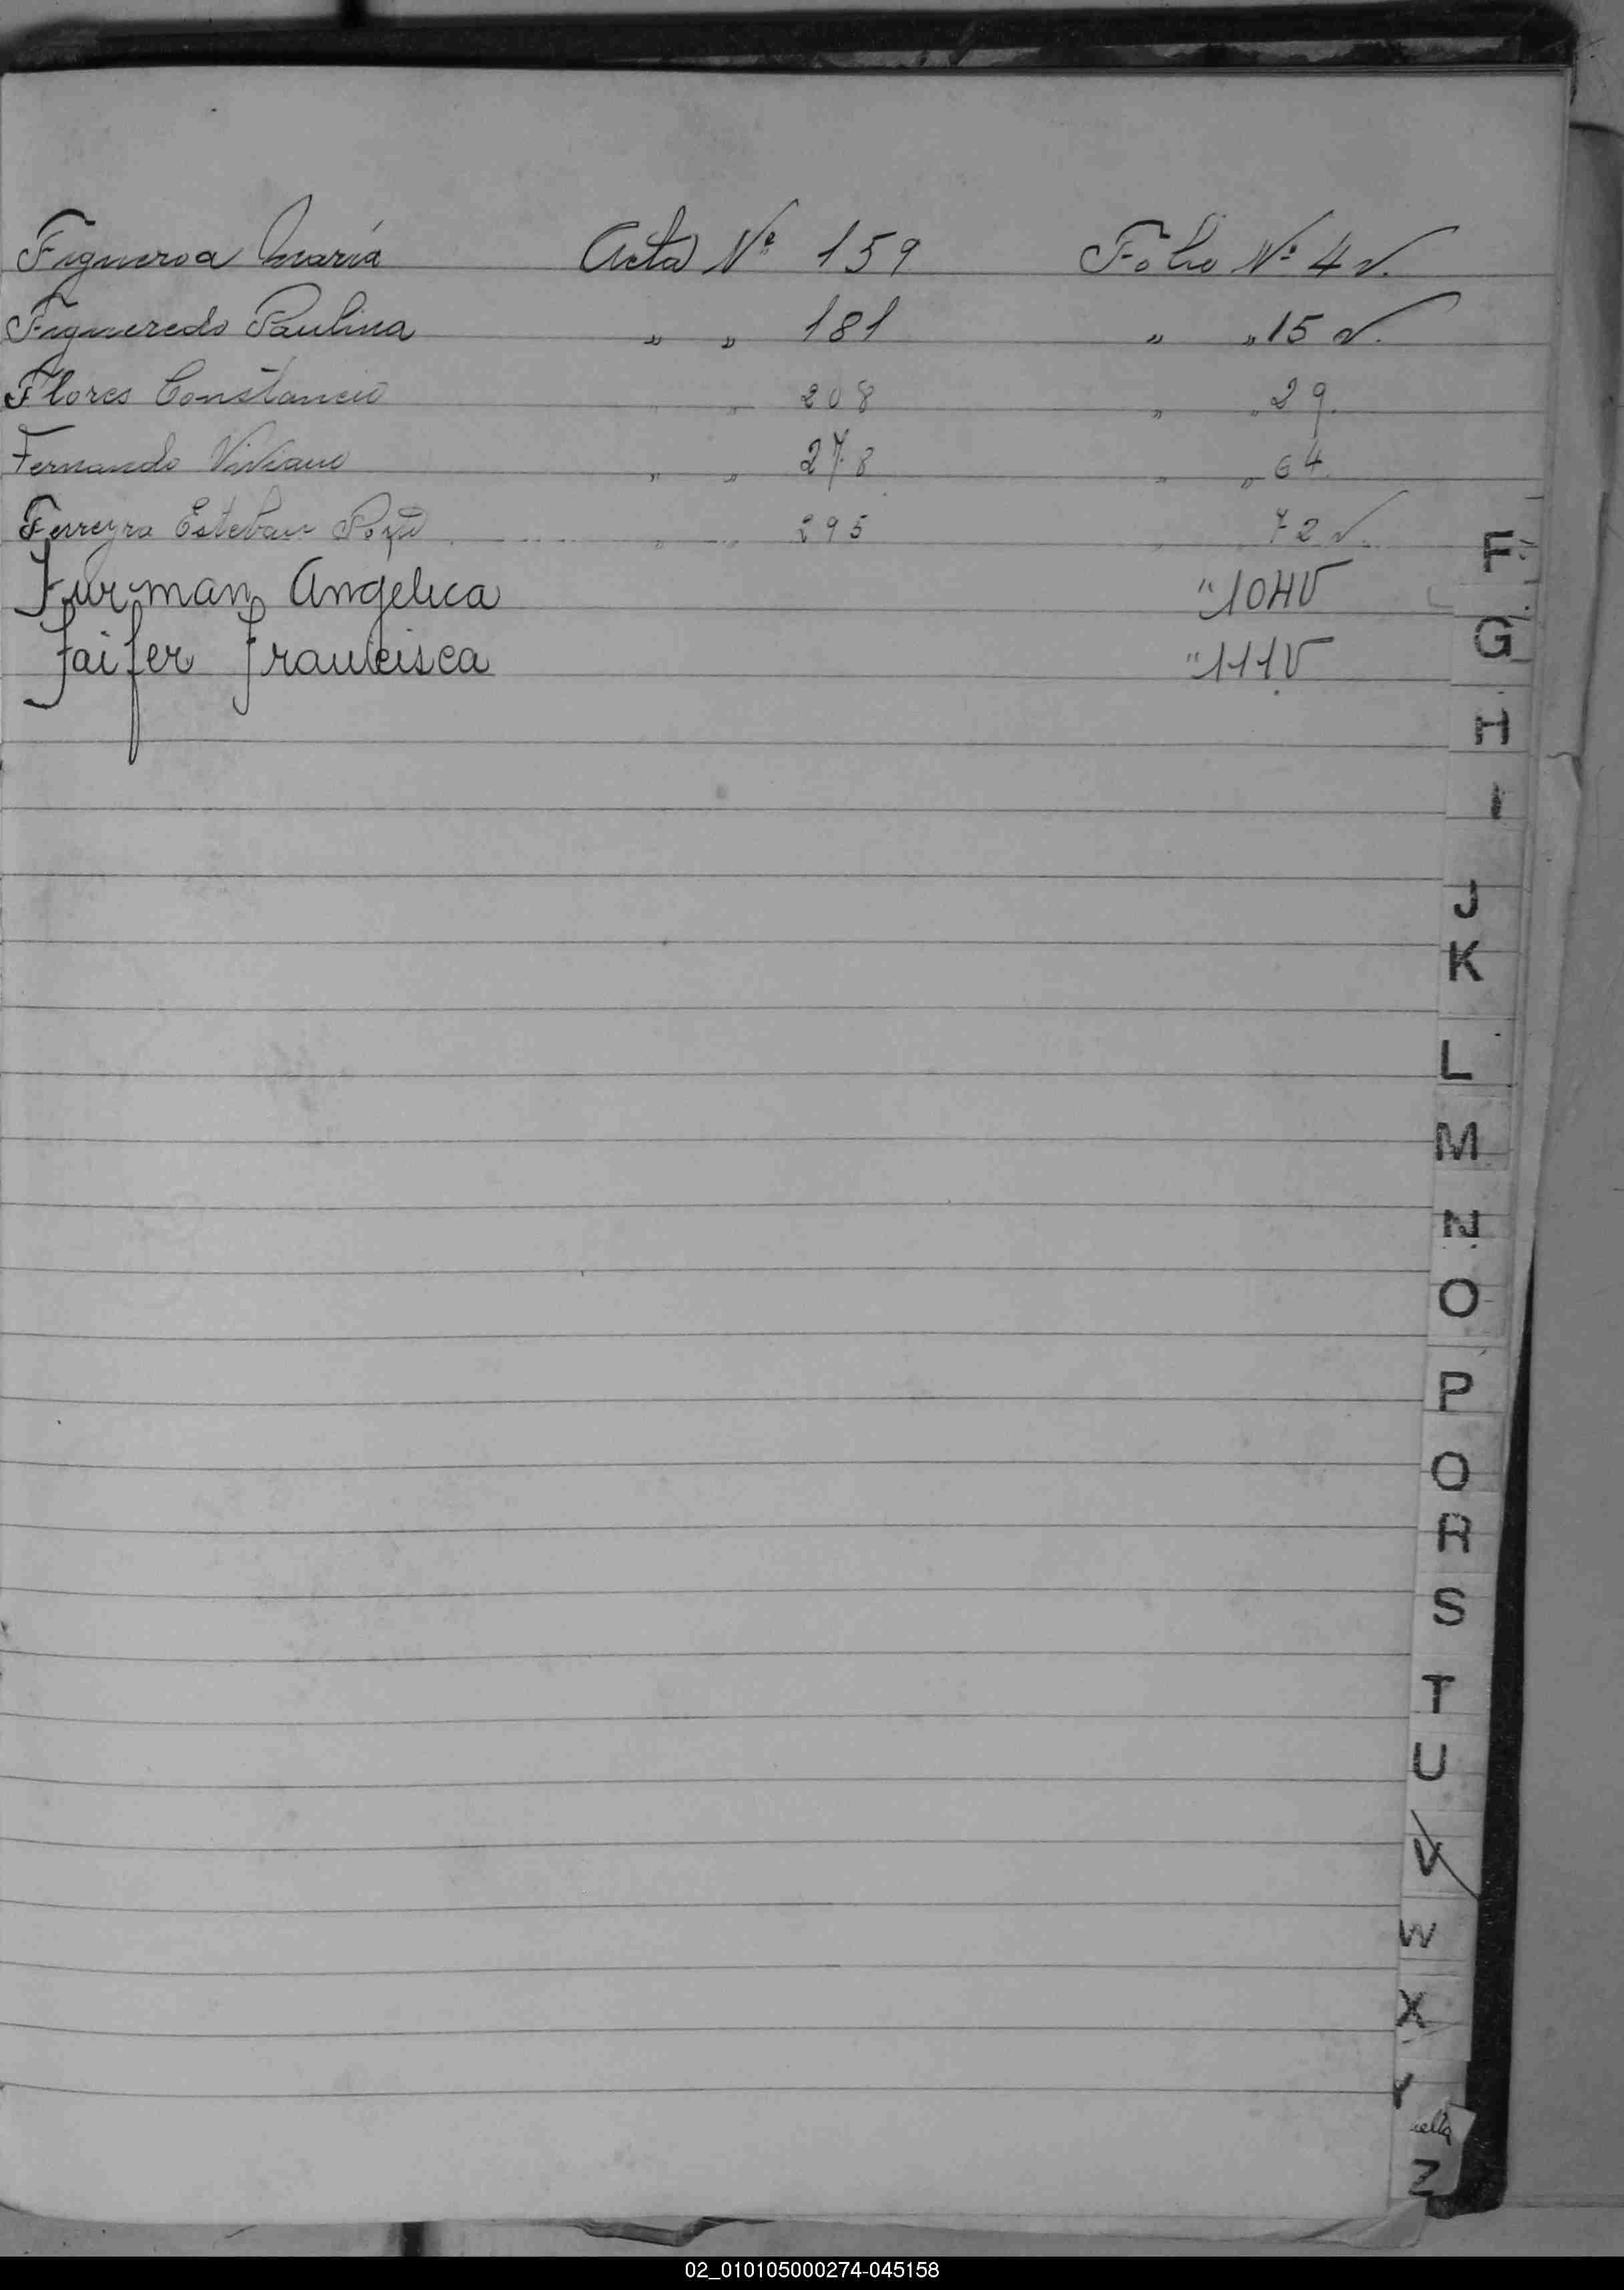 Figueroa María Acta Nº 159 Folio Nº 4 v.
Figueredo Paulina " " 181 " " 15 v.
Flores Constancio " " 208 " " 29.
Fernando Viviano " " 278 " " 64.
Ferreyra Esteban " " 295 " " 72 v.
Furman Angélica " 104V
Faifer Francisca " 111V
F
G
H
I
J
K
L
M
N
O
P
Q
R
S
T
U
V
W
X
Y
Z
02_010105000274-045158